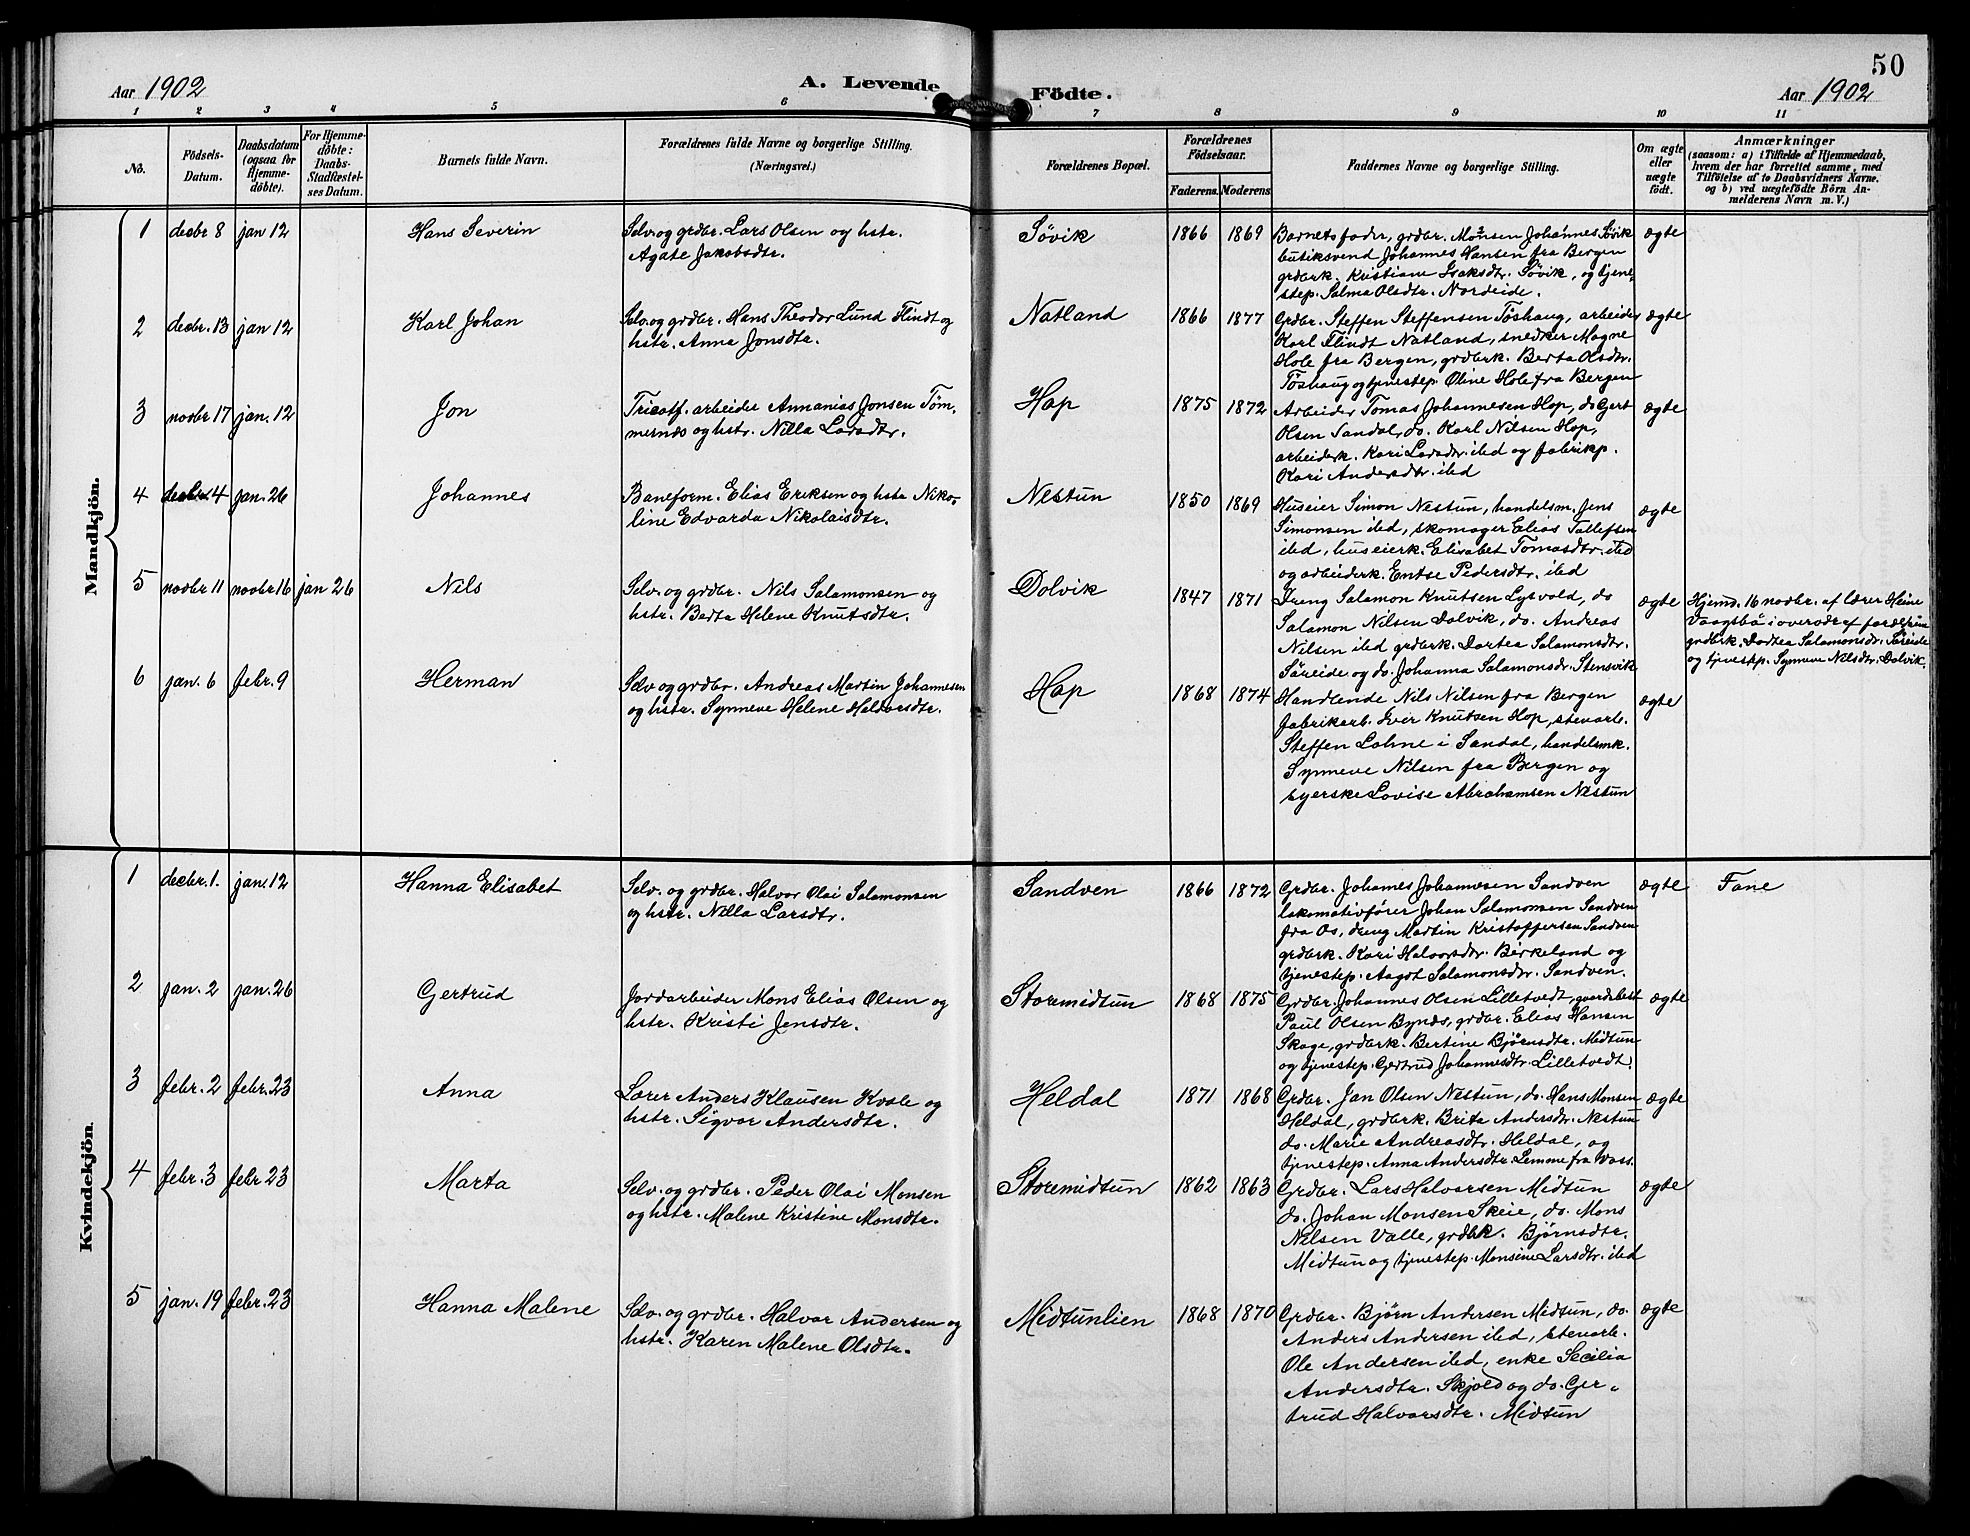 50
Aar 1902
A. Levende Födte.
Aar 1902
1 2 3 4 5 6 7 8 9 10 11
No.
Födsels-Datum.
Daabsdatum (ogsaa for Hjemmedöbte).
For Hjemmedöbte: Daabs-Stadfæstelses Datum.
Barnets fulde Navn.
Forældrenes fulde Navne og borgerlige Stilling.
(Næringsvei.)
Forældrenes Bopæl.
Forældrenes Födselsaar.
Faderens. Moderens
Faddernes Navne og borgerlige Stilling.
Om ægte eller uægte födt.
Anmærkninger
(saasom: a) i Tilfælde af Hjemmedaab,
hvem der har forrettet samme, med
Tilföielse af to Daabsvidners Navne.
og b) ved uægtefödte Börn An-
melderens Navn m. V.)
Mandkjön.
1 decbr 8 jan 12 Hans Severin
Selv. og grdbr. Lars Olsen og hstr.
Agate Jakobsdtr.
Søvik 1866 1869
Barnets fader, grdbr. Monsen Johannes Søvik
butiksvend Johannes Hansen fra Bergen
grdbrk. Kristiane Isaksdtr. Søvik, og tjene-
step. Salma Olsdtr. Nordeide.
ægte
2 decbr. 13 jan 12 Karl Johan
Selv. og grdbr. Hans Theodor Lund Flindt og
hstr. Anna Jonsdtr.
Natland 1866 1877
Grdbr. Steffen Steffensen Tøshaug, arbeider
Karl Flindt Natland, snedker Magne
Hole fra Bergen, grdbrk. Berta Olsdtr.
Tøshaug og tjenestep. Oline Hole fra Bergen
ægte
3 novbr 17 jan. 12 Jon
Tricotf. arbeider Annanias Jonsen Töm-
mernes og hstr. Nilla Larsdtr.
Hop 1875 1872
Arbeider Tomas Johannesen Hop, do Gert
Olsen Sandal, do. Karl Nilsen Hop,
arbeiderk. Kari Larsdtr. ibd og fabrikp.
Kari Andersdtr. ibd
ægte
4 decbr 4 jan. 26 Johannes
Baneform. Elias Eriksen og hstr Niko-
line Edvarda Nikolaisdtr.
Nestun 1850 1869
Huseier Simon Nestun, handelsm. Jens
Simonsen ibd, skomager Elias Tollefsen
ibd, huseierk. Elisabet Tomasdtr. ibd
og arbeiderk. Entse Pedersdtr. ibd
ægte
5 novbr 11 novbr 16 jan 26 Nils
Selv. og grdbr. Nils Salamonsen og
hstr. Berta Helene Knutsdtr.
Dolvik 1847 1871
Dreng Salamon Knutsen Lysvold, do
Salamon Nilsen Dolvik, do. Andreas
Nilsen ibd grdbrk. Dortea Salamonsdtr.
Søreide og do. Johanna Salamonsdr. Stensvik
ægte
Hjemd. 16 novbr. af lærer Heine
Vaagsbø i overvær af
grdbrk. Dortea Salamonsdr. Søreide
og tjenstep. Synneve Nilsdtr. Dolvik.
6 jan. 6 febr. 9 Herman
Selv og grdbr. Andreas Martin Johannesen
og hstr. Synneve Helene Haldorsdtr.
Hop 1868 1874
Handlende Nils Nilsen fra Bergen
fabrikarb. Iver Knutsen Hop, stenarb.
Steffen Lohne i Sandal, handelsmk.
Synneve Nilsen fra Bergen og
syerske Lovise Abrahamsen Nestun
ægte
Kvindekjön.
1 decbr. 1. jan. 12 Hanna Elisabet
Selv. og grdbr. Halvor Olai Salamonsen
og hstr. Nilla Larsdtr.
Sandven 1866 1872
Grdbr. Johannes Johannesen Sandven
lokomotivförer Johan Salamonsen Sandven
fra Os, dreng Martin Kristoffersen Sandven
grdbrk. Kari Halvorsdtr. Birkeland og
tjenestep. Aagot Salamonsdtr. Sandven.
ægte
Fane
2 jan. 2 jan. 26 Gertrud
Jordarbeider Mons Elias Olsen og
hstr. Kristi Jensdtr.
Storemidtun 1868 1875
Grdbr. Johannes Olsen Lilletvedt, gaardsbest
Paul Olsen Bynes, grdbr. Elias Hansen
Skage, grdbrk. Bertine Bjørnsdtr. Midtun
og tjenestep. Gertrud Johannesdtr. Lilletvedt.
ægte
3 febr. 2 febr. 23 Anna
Lærer Anders Klausen Kvale og
hstr. Sigvor Andersdtr.
Heldal 1871 1868
Grdbr. Jan Olsen Nestun, do. Hans Monsen
Heldal, grdbrk. Brita Andersdtr. Nestun
do. Marie Andreasdtr. Heldal, og
tjenestep. Anna Andersdtr. Lemme fra Voss.
ægte
4 febr. 3 febr 23 Marta
Selv. og grdbr. Peder Olai Monsen
og hstr. Malene Kristine Monsdtr.
Storemidtun 1862 1863
Grdbr. Lars Halvorsen Midtun
do. Johan Monsen Skeie, do. Mons
Nilsen Valle, grdbk. Bjørnsdtr.
Midtun og tjenestep. Monsine Larsdtr. ibd
ægte
5 jan. 19 febr. 23 Hanna Malene
Selv. og grdbr. Halvor Andersen og
hstr. Karen Malene Olsdtr.
Midtunlien 1868 1870
Grdbr. Bjørn Andersen Midtun, do.
Anders Andersen ibd, stenarb.
Ole Andersen ibd, enke Secilia
Andersdtr. Skjold og do. Ger-
trud Halvorsdtr. Midtun
ægte